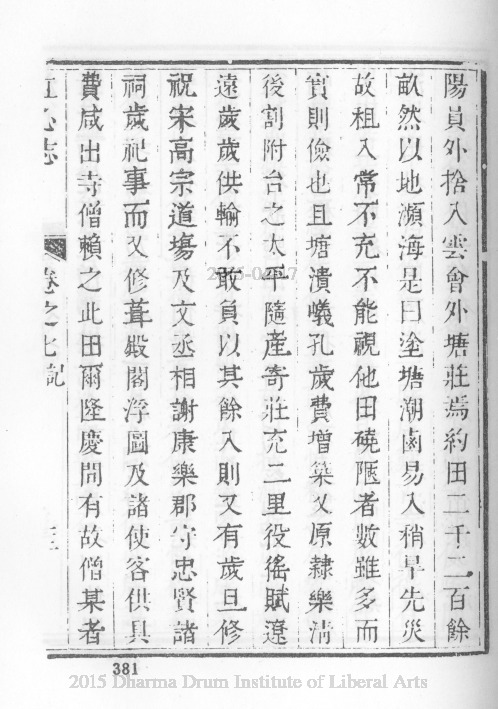 陽員外捨入雲會外塘莊焉約田二千二百餘
畝然以地瀕海是曰塗塘潮鹵易入稍旱先災
故租入常不充不能視他田磽陿者數雖多而
實則儉也且塘潰蟻孔歲費增築又原隸樂清
後割附台之太平隨產寄莊充二里役徭賦遼
遠歲歲供輸不敢負以其餘入則又有歲旦修
祝宋高宗道塲及文丞相謝康樂郡守忠賢諸
祠歲祀事而又修葺殿閣浮圖及諸使客供具
費咸出寺僧賴之此田爾隆慶間有故僧某者
江心志
卷之七記
三
381
2015 Dharma Drum Institute of Liberal Arts